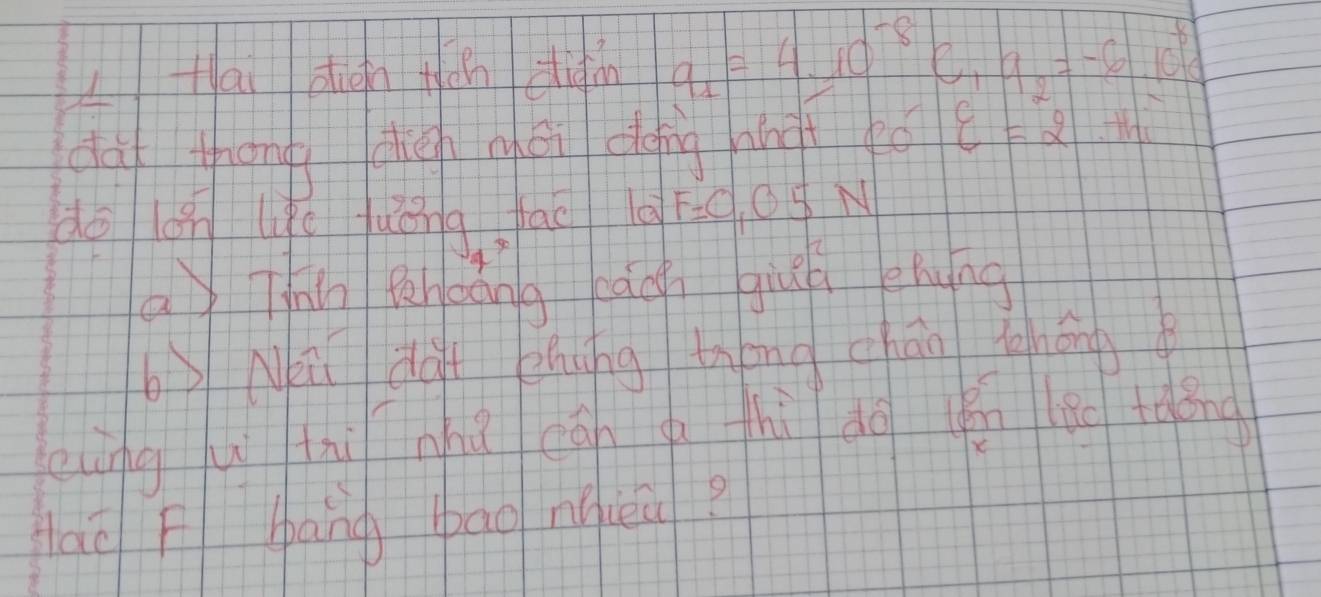 1 Hai điện tích điểm q₁ = 4.10⁻⁸ C, q₂ = -6.10⁻⁸C
đặt trong điện môi đồng nhất có ε = 2 thì
độ lớn lực tương tác là F=0,05 N
a) Tính khoảng cách giữa chúng
b) Nếu đặt chúng trong chân không ở
cùng vị trí như câu a thì độ lớn lực tương
tác F bằng bao nhiêu?